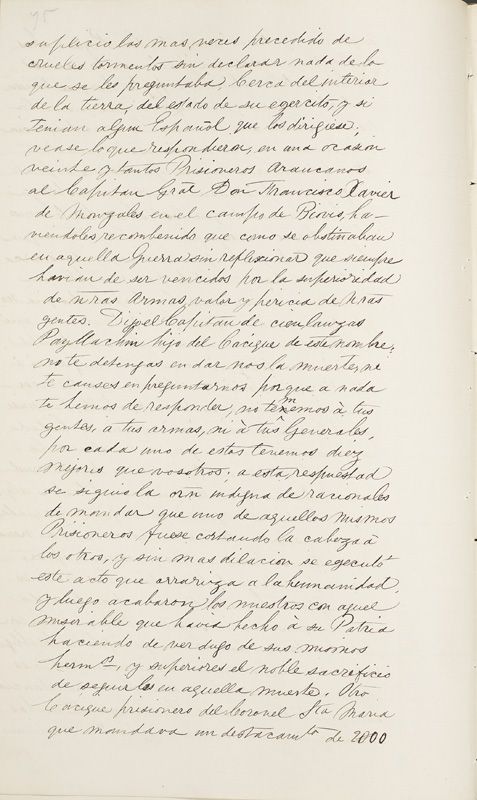 95
suplicio las mas veces precedido de
crueles tormentos sin declarar nada de lo
que se les preguntaba, cerca del interior
de la tierra, del estado de su egercito, y si
tenian algun Español que los dirigiese;
vease lo que respondieron, en una ocasion
veinte y tantos Prisioneros Araucanos
al Capitan Gral Don Francisco Xavier
de Morgales en el campo de Biovio, ha-
viendoles recombenido que como se obstinaban
en aquella Guerra sin reflexionar que siempre
havian de ser vencidos por la superioridad
de nras Armas, valor y pericia de nras
gentes. Dijo el Capitan de cien lanzas
Payllachin hijo del Cacique de este nombre,
no te detengas en darnos la muerte, ni
te causes en preguntarnos porque a nada
te hemos de responder, no tememos à tus
gentes, a tus armas, ni à tus Generales,
por cada uno de estos tenemos diez
mejores que vosotros; a esta respuesta
se siguio la orn indigna de racionales
de mandar que uno de aquellos mismos
Prisioneros fuese cortando la cabeza a
los otros, y sin mas dilacion se egecutó
este acto que orroriza a la humanidad,
y luego acabaron los nuestros con aquel
miserable que havia hecho à su Patria
haciendo de verdugo de sus mismos
herms, y superiores el noble sacrificio
de seguirlos en aquella muerte. Otro
Cacique prisionero del Coronel Sta Maria
que mandava un destacamto de 2000